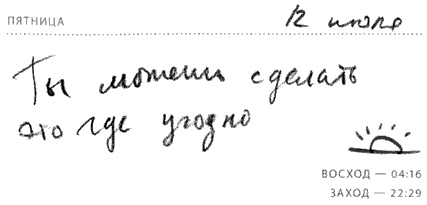 ПЯТНИЦА
12 июля
Ты можешь сделать
это где угодно
ВОСХОД — 04:16
ЗАХОД — 22:29